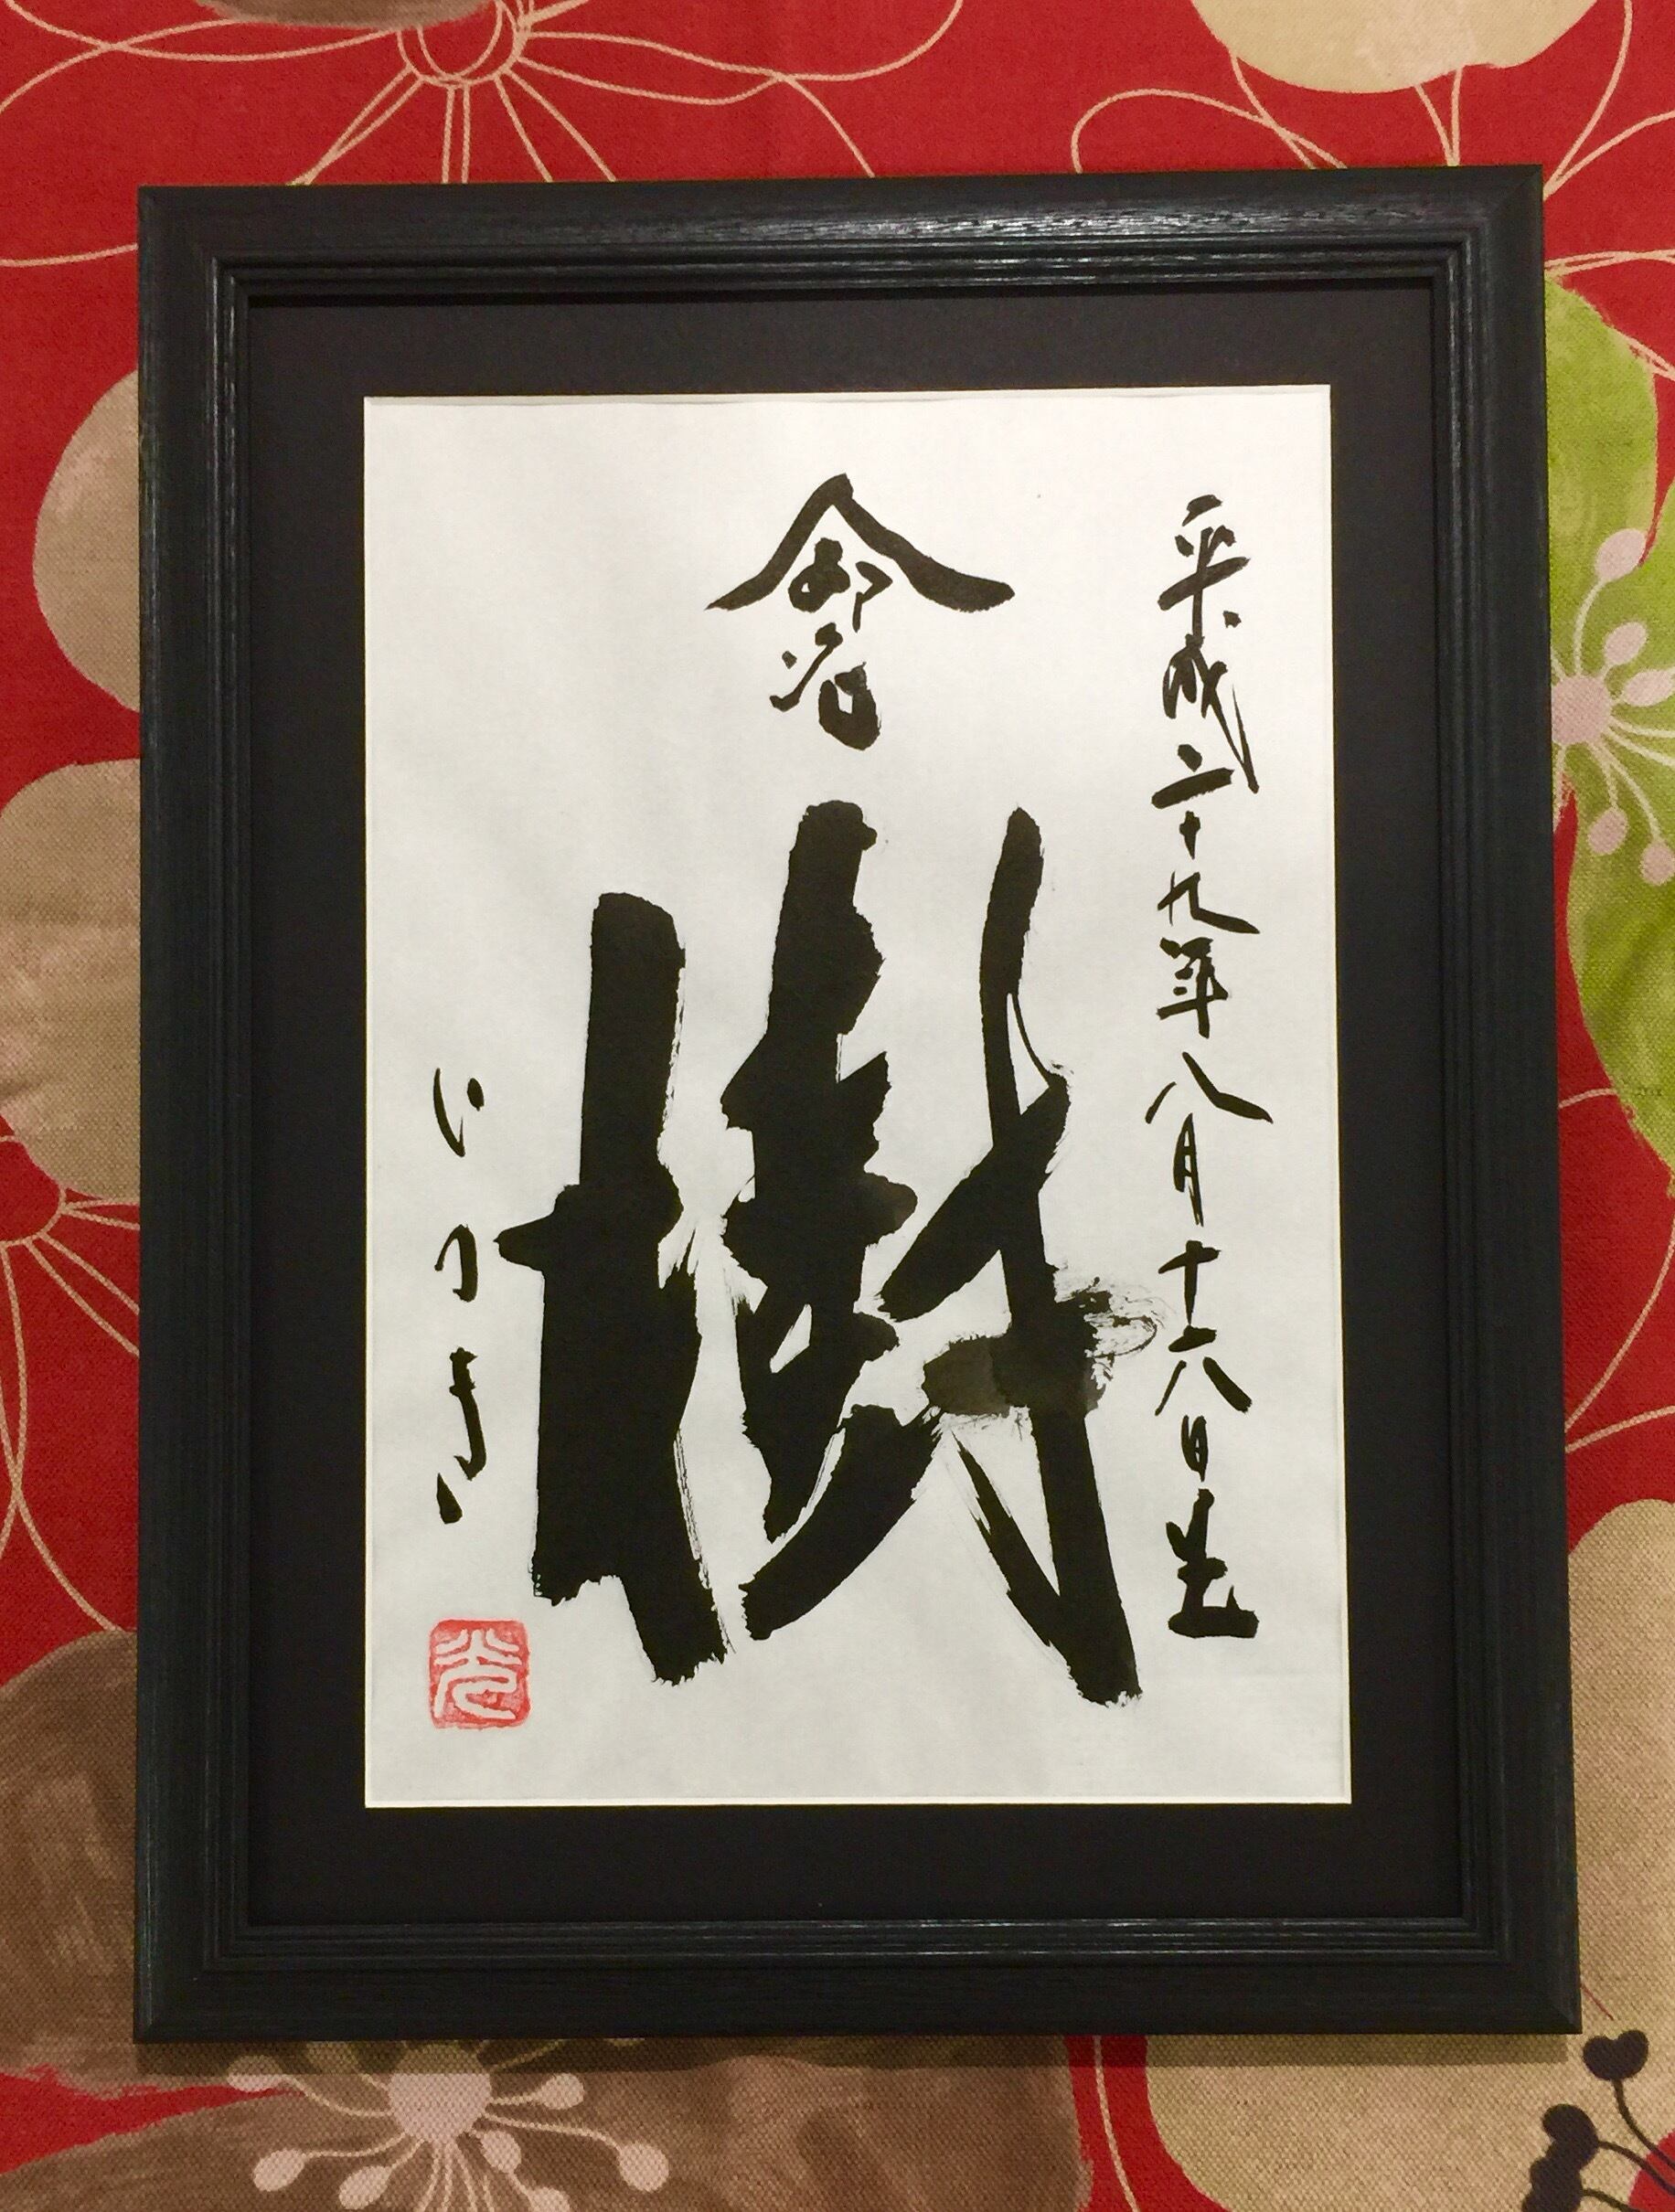 平成二十九年八月十六日生
命名
樹
いつき
光